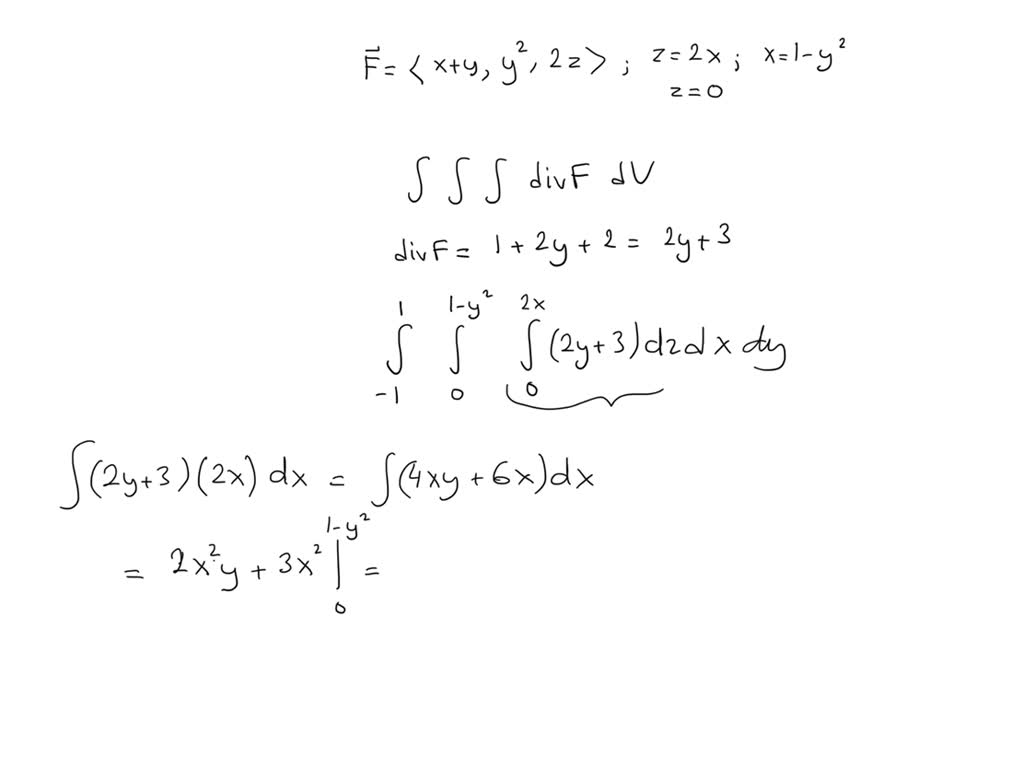 F⃗ = ⟨ x+y, y², 2z ⟩ ; z = 2x ; x = 1-y²
z = 0
∫ ∫ ∫ divF dV
divF = 1 + 2y + 2 = 2y + 3
∫₋₁¹ ∫₀^(1-y²) ∫₀^(2x) (2y+3) dz dx dy
∫(2y+3)(2x) dx = ∫(4xy + 6x) dx
= 2x²y + 3x² |₀^(1-y²) =